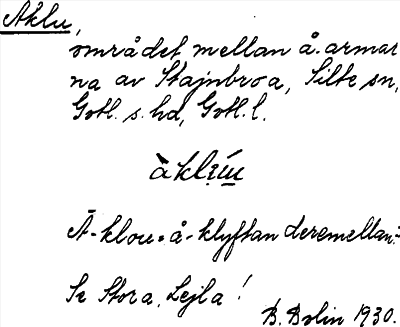 Aklu,
området mellan å-armar
na av Stajnbroa, Silte sn,
Gotl. s. hd, Gotl. l.
àklíu
Ā-klou = å-klyftan deremellan.
Se Stora, Lejla!
B. Bolin 1930.